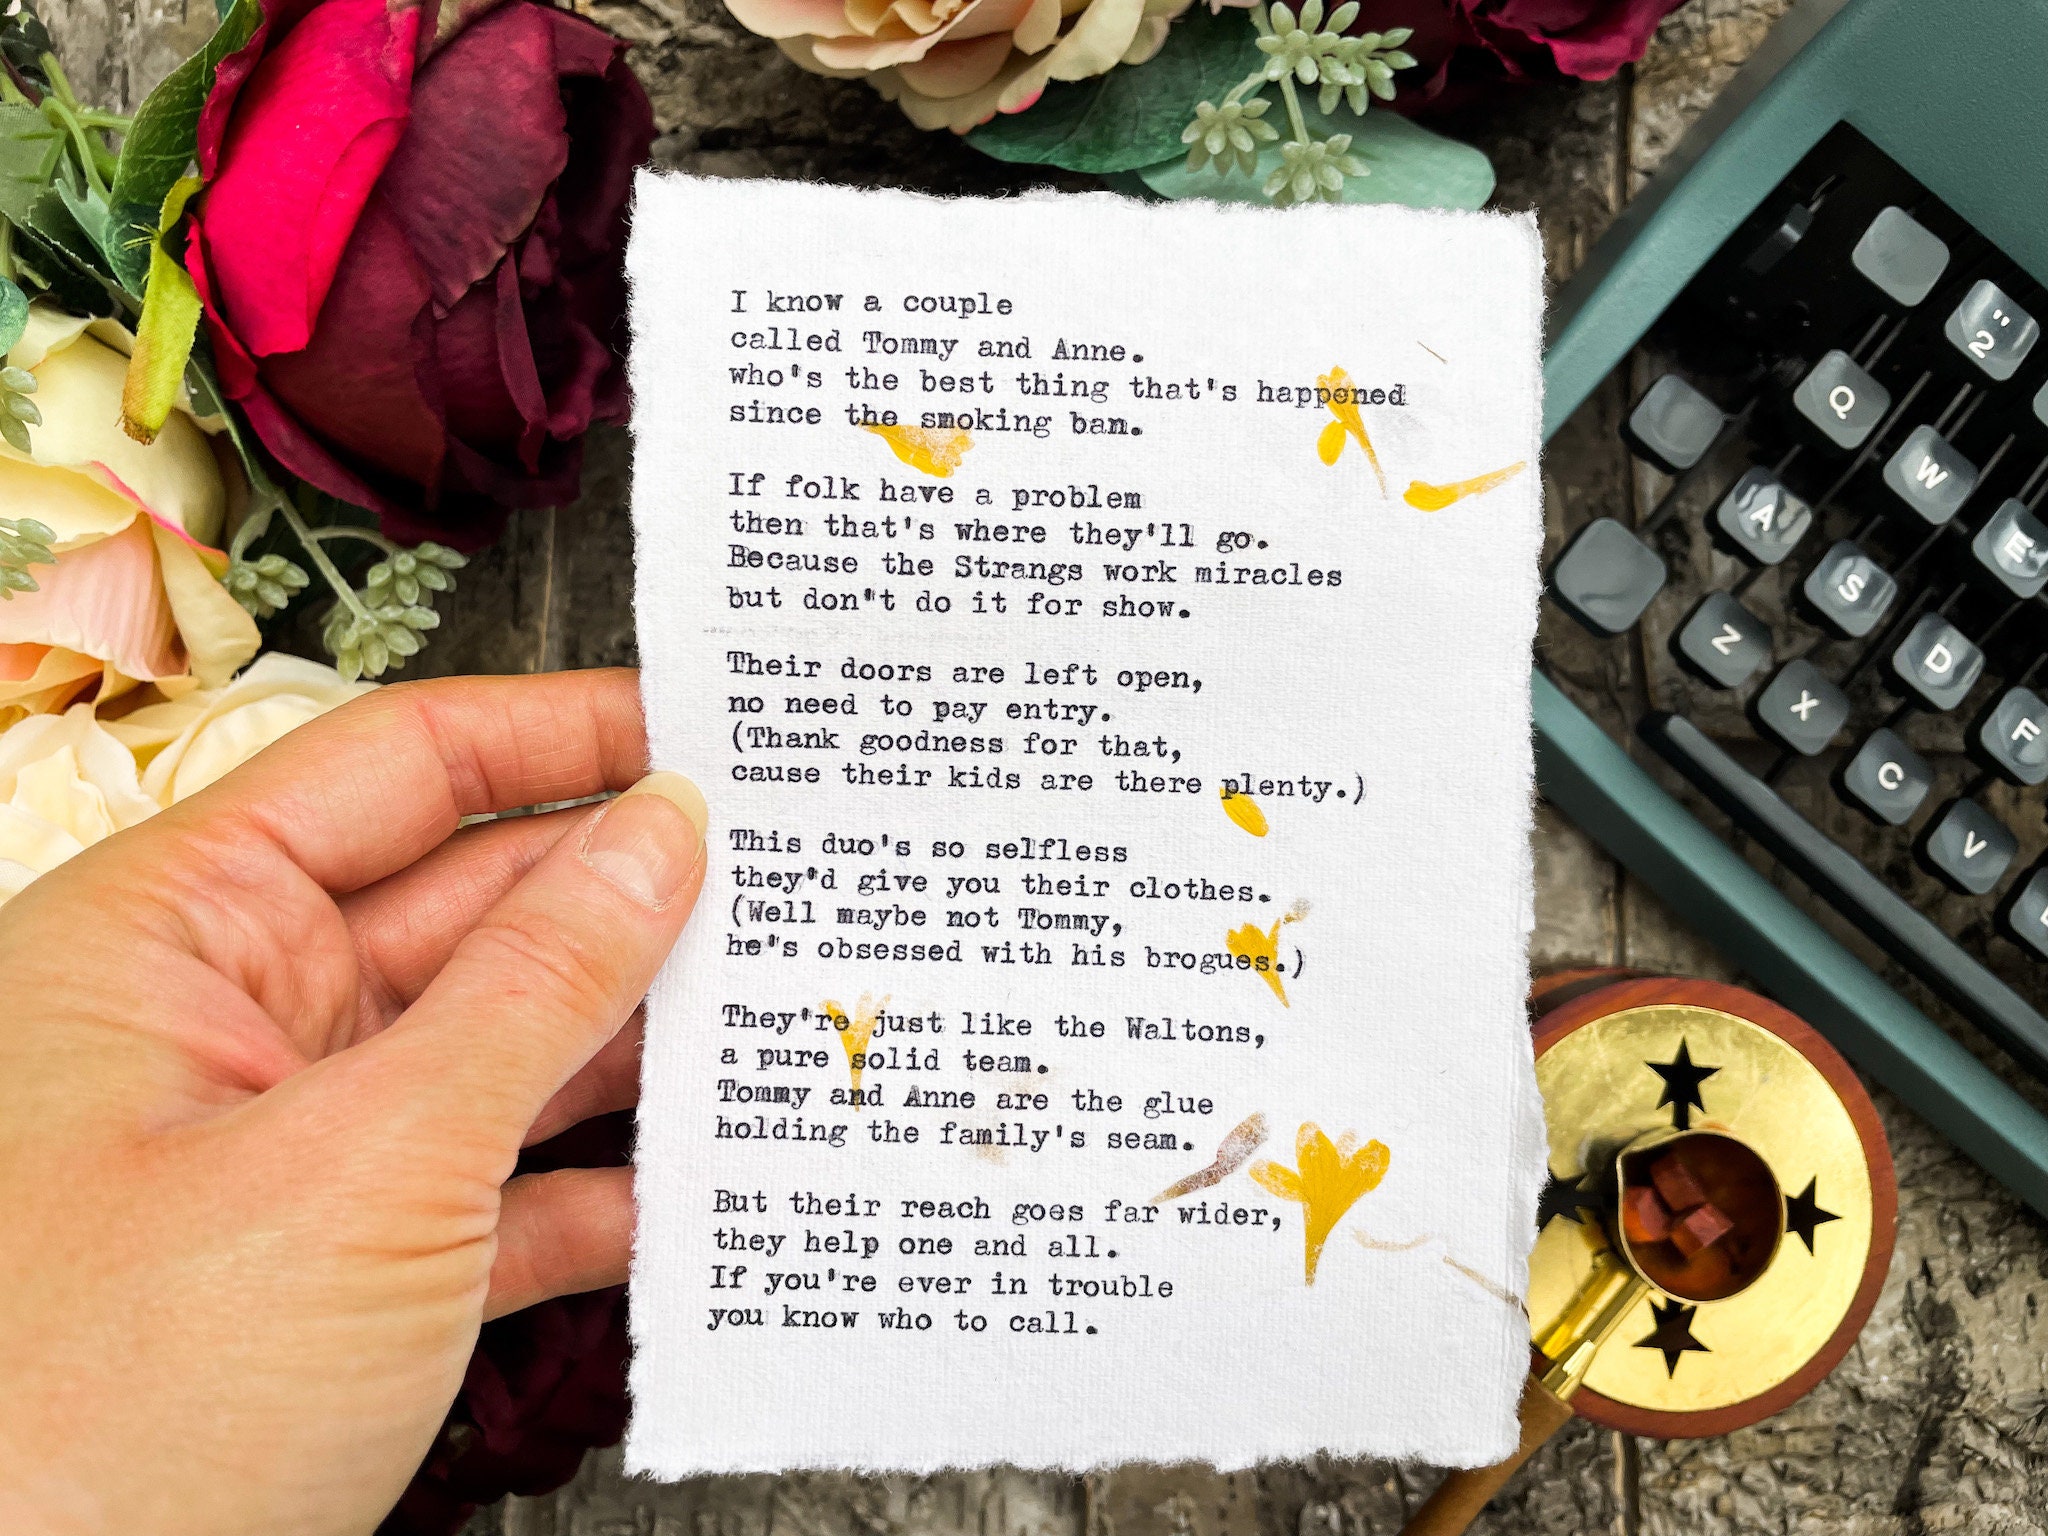 I know a couple
called Tommy and Anne.
who's the best thing that's happened
since the smoking ban.
If folk have a problem
then that's where they'll go.
Because the Strangs work miracles
but don"t do it for show.
Their doors are left open,
no need to pay entry.
(Thank goodness for that,
cause their kids are there plenty.)
This duo's so selfless
they'd give you their clothes.
(Well maybe not Tommy,
he's obsessed with his brogues.)
They're just like the Waltons,
a pure solid team.
Tommy and Anne are the glue
holding the family's seam.
But their reach goes far wider,
they help one and all.
If you're ever in trouble
you know who to call.
"
2
Q
W
E
A
S
D
F
Z
X
C
V